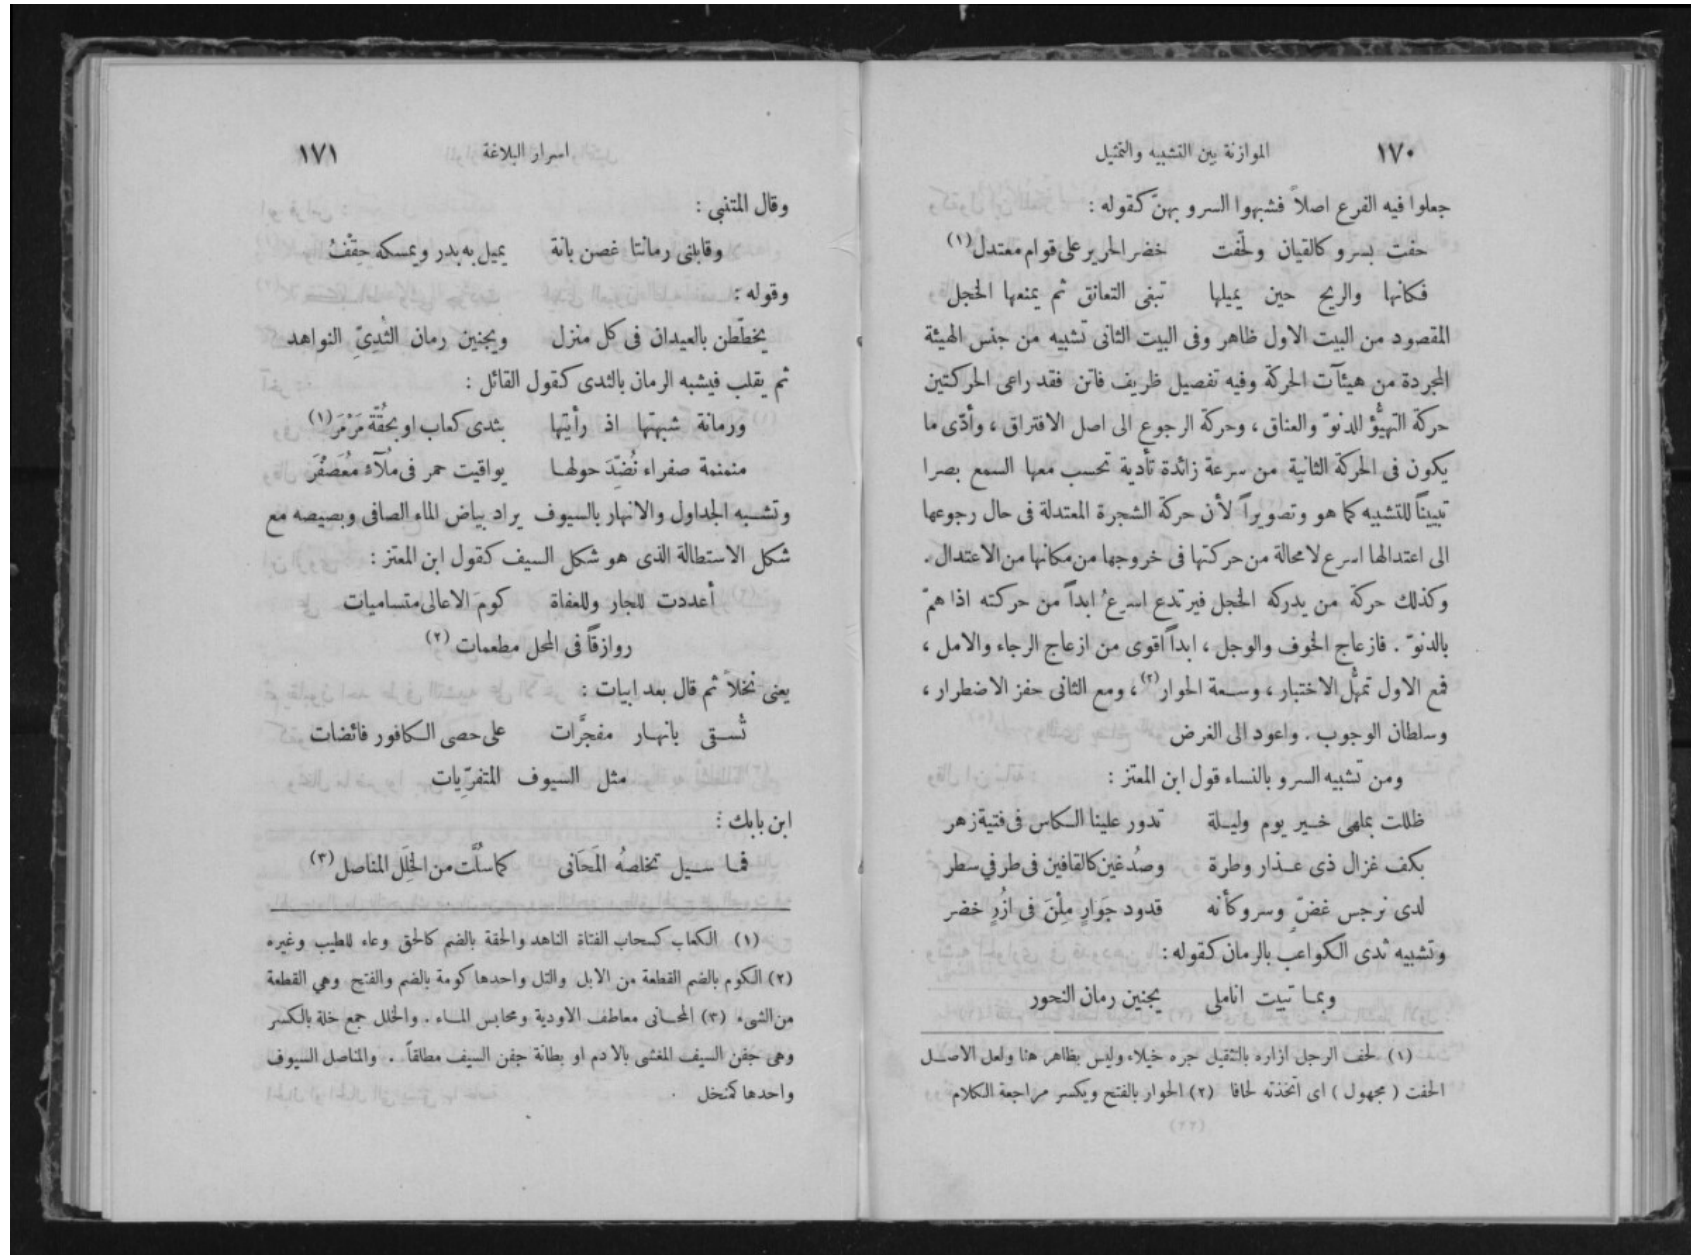 ١٧٠ الموازنة بين التشبيه والتمثيل
جعلوا فيه الفرع اصلاً فشبهوا السرو بهنّ كقوله :
حفت بسرو كالقيان ولحّفت خضر الحرير على قوام معتدل (١)
فكانها والريح حين يميلها تبغى التعانق ثم يمنعها الخجل
المقصود من البيت الاول ظاهر وفى البيت الثانى تشبيه من جنس الهيئة
المجردة من هيئآت الحركة وفيه تفصيل ظريف فاتن فقد راعى الحركتين
حركة التهيُّؤ للدنوّ والعناق ، وحركة الرجوع الى اصل الافتراق ، وأدّى ما
يكون فى الحركة الثانية من سرعة زائدة تأدية تحسب معها السمع بصرا
تبييناً للتشبيه كما هو وتصويراً لأن حركة الشجرة المعتدلة فى حال رجوعها
الى اعتدالها اسرع لا محالة من حركتها فى خروجها من مكانها من الاعتدال .
وكذلك حركة من يدركه الخجل فيرتدع اسرعُ ابداً من حركته اذا همّ
بالدنوّ . فازعاج الخوف والوجل ، ابداً اقوى من ازعاج الرجاء والامل ،
فمع الاول تمهُّل الاختبار ، وسعة الحوار (٢) ، ومع الثانى حفز الاضطرار ،
وسلطان الوجوب . واعود الى الغرض
ومن تشبيه السرو بالنساء قول ابن المعتز :
ظللت بملهى خير يوم وليلة تدور علينا الكاس فى فتية زهر
بكف غزال ذى عذار وطرة وصُدغين كالقافين فى طرفي سطر
لدى نرجس غضّ وسرو كأنه قدود جَوارٍ مِلْنَ فى ازُرٍ خضر
وتشبيه ثدى الكواعب بالرمان كقوله :
وبما تبيت اناملى يجنين رمان النحور
(١) لحف الرجل ازاره بالتثقيل جره خيلاء وليس بظاهر هنا ولعل الاصل
الحفت ( مجهول ) اى اتخذته لحافا (٢) الحوار بالفتح ويكسر مراجعة الكلام
اسرار البلاغة ١٧١
وقال المتنبى :
وقابلنى رمانتا غصن بانة يميل به بدر ويمسكه حِقْفُ
وقوله :
يخطّطن بالعيدان فى كل منزل ويجنين رمان الثُدِىّ النواهد
ثم يقلب فيشبه الرمان بالثدى كقول القائل :
ورمانة شبهتها اذ رأيتها بثدى كعاب او بحُقّة مَرْمَر (١)
منمنمة صفراء نُضِّدَ حولها يواقيت حمر فى مُلآء مُعَصْفَر
وتشبه الجداول والانهار بالسيوف يراد بياض الماء الصافى وبصيصه مع
شكل الاستطالة الذى هو شكل السيف كقول ابن المعتز :
أعددت للجار وللعفاة كومَ الاعالى متساميات
روازقاً فى المحل مطعمات (٢)
يعنى نخلاً ثم قال بعد ابيات :
تُسقى بانهار مفجَّرات على حصى الكافور فائضات
مثل السيوف المتفرّيات
ابن بابك :
فما سيل تخلصهُ المَحَانى كما سُلَّت من الخِلَل المناصل (٣)
(١) الكعاب كسحاب الفتاة الناهد والحقة بالضم كالحق وعاء للطيب وغيره
(٢) الكوم بالضم القطعة من الابل والتل واحدها كومة بالضم والفتح وهي القطعة
من الشىء (٣) المحانى معاطف الاودية ومحابس الماء . والخلل جمع خلة بالكسر
وهى جفن السيف المغشى بالادم او بطانة جفن السيف مطلقاً . والمناصل السيوف
واحدها كمنخل